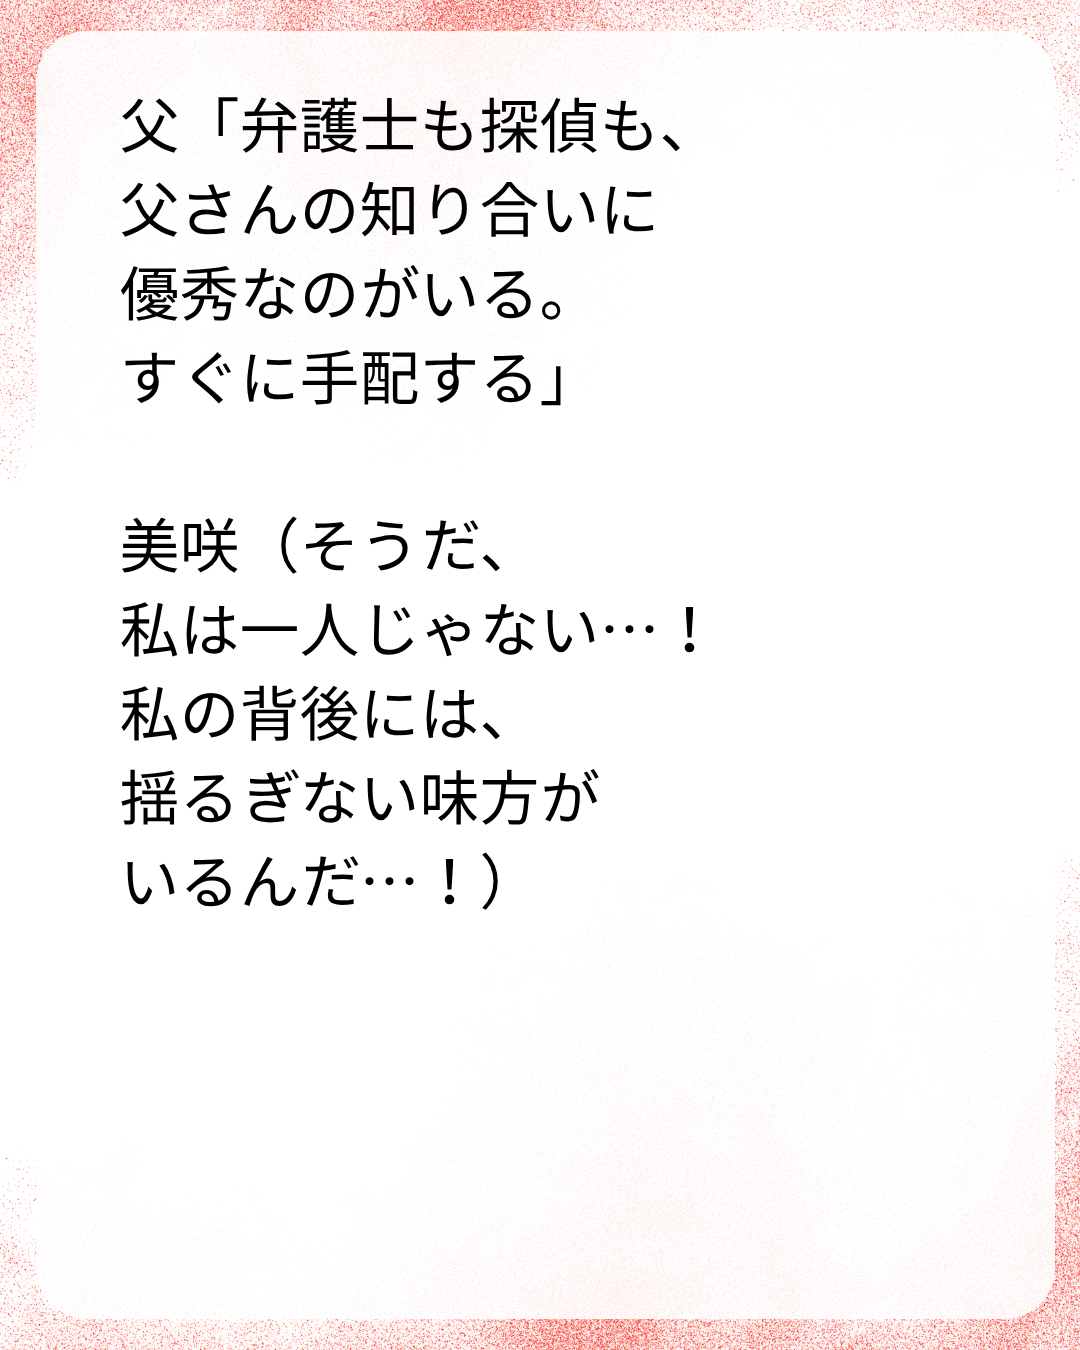 父「弁護士も探偵も、
父さんの知り合いに
優秀なのがいる。
すぐに手配する」
美咲（そうだ、
私は一人じゃない…！
私の背後には、
揺るぎない味方が
いるんだ…！）